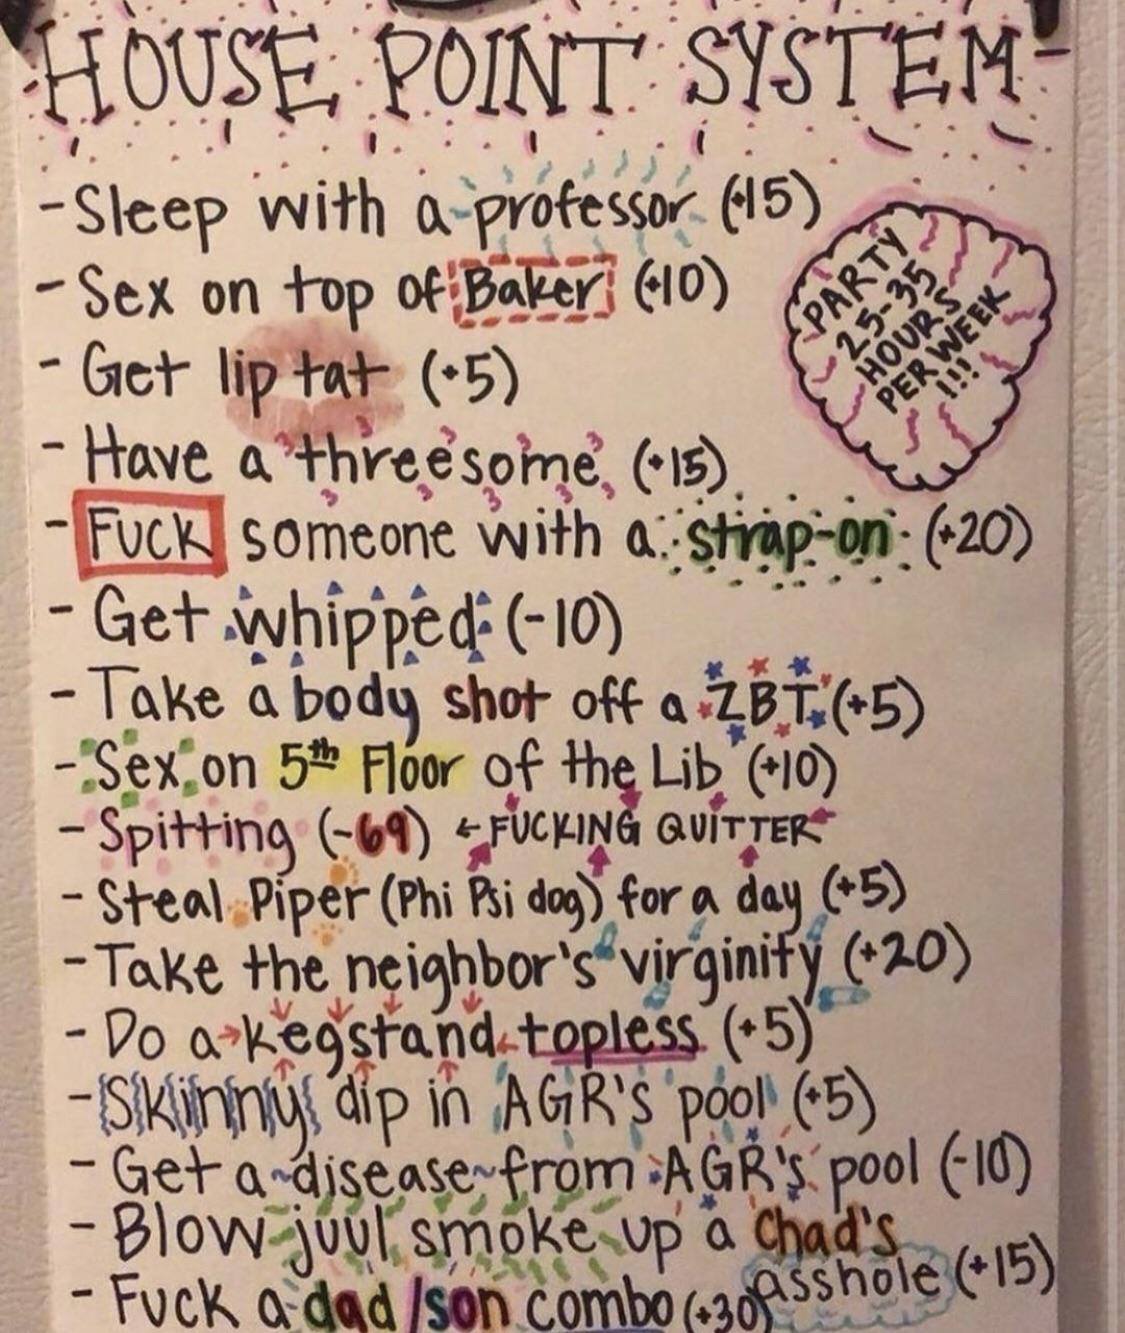 HOUSE POINT SYSTEM
- Sleep with a professor (+15)
- Sex on top of Baker (+10)
PARTY
25-35
HOURS
PER WEEK
!!!
- Get lip tat (+5)
- Have a threesome (+15)
- FUCK someone with a strap-on (+20)
- Get whipped (-10)
- Take a body shot off a ZBT (+5)
- Sex on 5th Floor of the Lib (+10)
- Spitting (-69) ← FUCKING QUITTER
- Steal Piper (Phi Psi dog) for a day (+5)
- Take the neighbor's virginity (+20)
- Do a kegstand topless (+5)
- Skinny dip in AGR's pool (+5)
- Get a disease from AGR's pool (-10)
- Blow juul smoke up a Chad's
asshole (+15)
- Fuck a dad/son combo (+30)